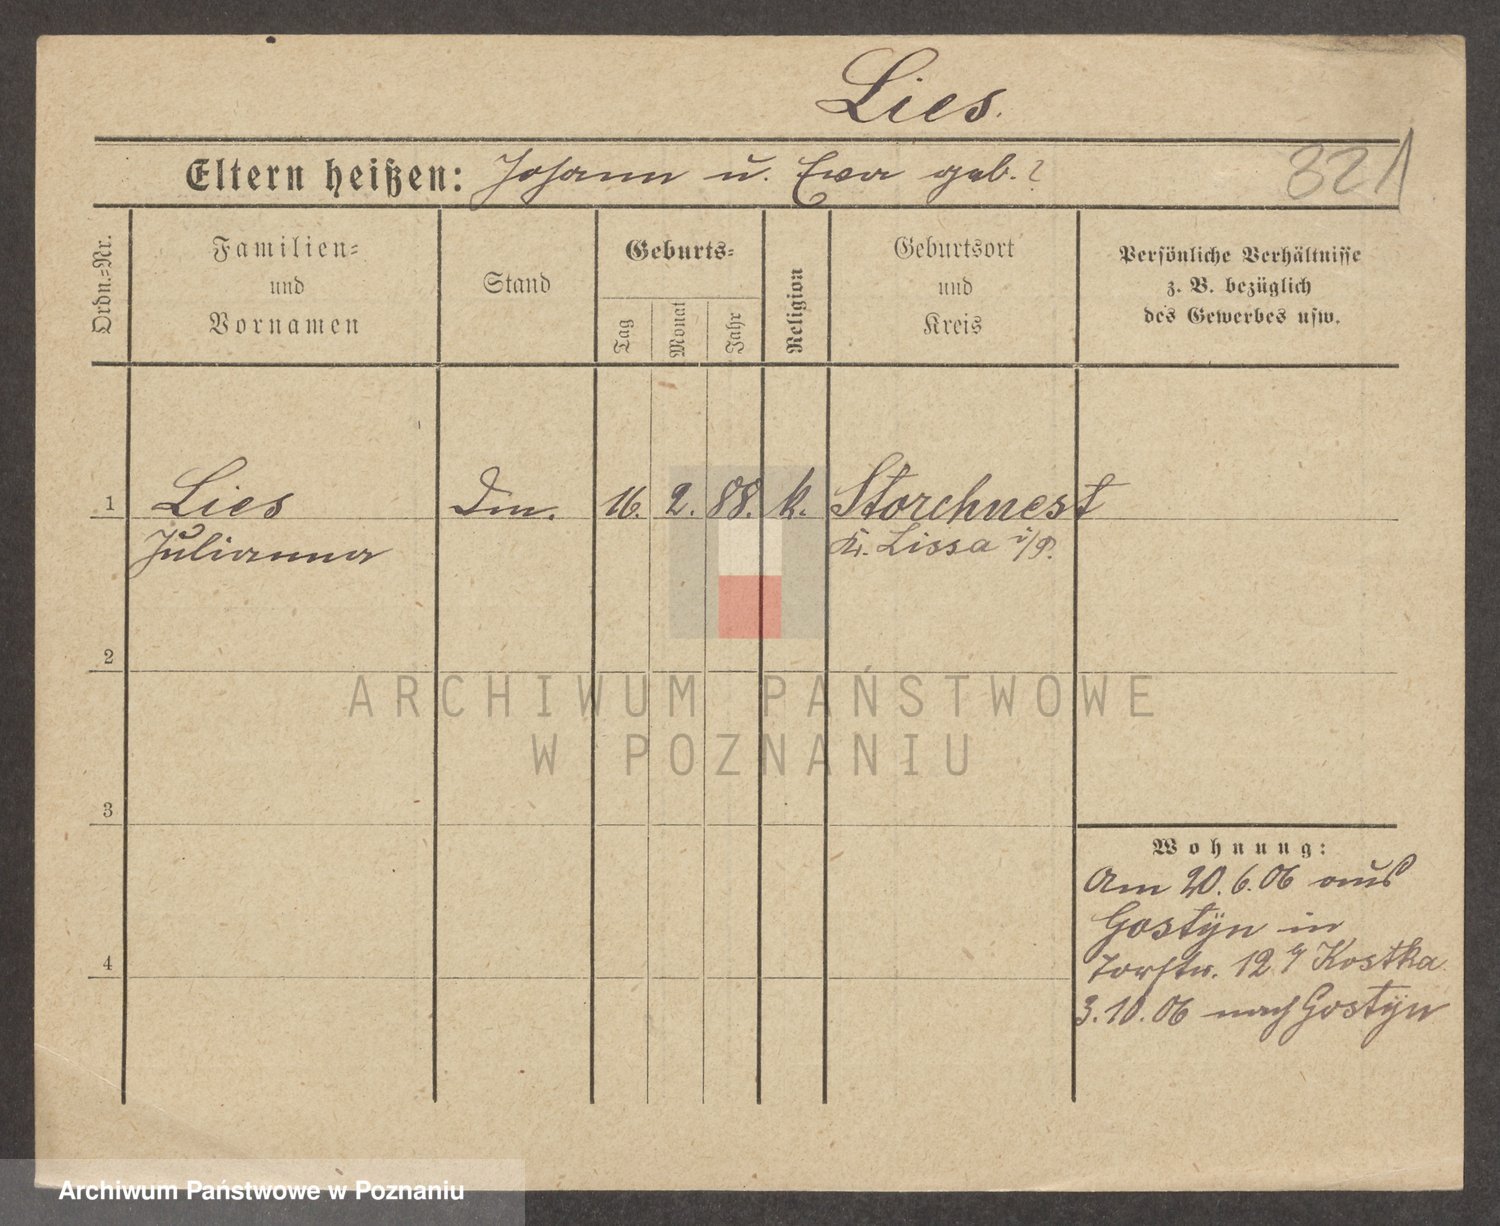 Lies.
Eltern heißen: Johann u. Ewa geb. ?
321
Ordn.=Nr.
Familien=
und
Vornamen
Stand
Geburts=
Tag
Monat
Jahr
Religion
Geburtsort
und
Kreis
Persönliche Verhältnisse
z. B. bezüglich
des Gewerbes usw.
1 Lies Dm. 16. 2. 88. k. Storchnest
Julianna Kr. Lissa i/P.
2
3
4
Wohnung:
Am 20.6.06 aus
Gostÿn in
Torstr. 12 Kostka
3.10.06 nach Gostÿn
ARCHIWUM PAŃSTWOWE
W POZNANIU
Archiwum Państwowe w Poznaniu